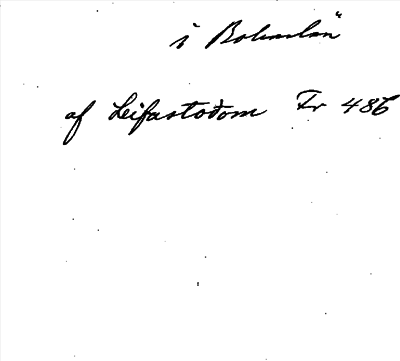 i Bohuslän"
af Leifastodom Fr 486